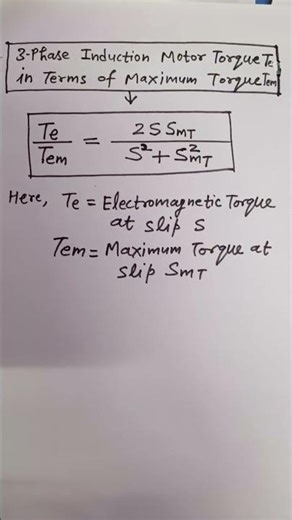 3-Phase Induction Motor Torque Te
in Terms of Maximum Torque Tem
↓
Te/Tem = 2SSmT/(S²+S²mT)
Here, Te = Electromagnetic Torque
at slip S
Tem = Maximum Torque at
slip SmT